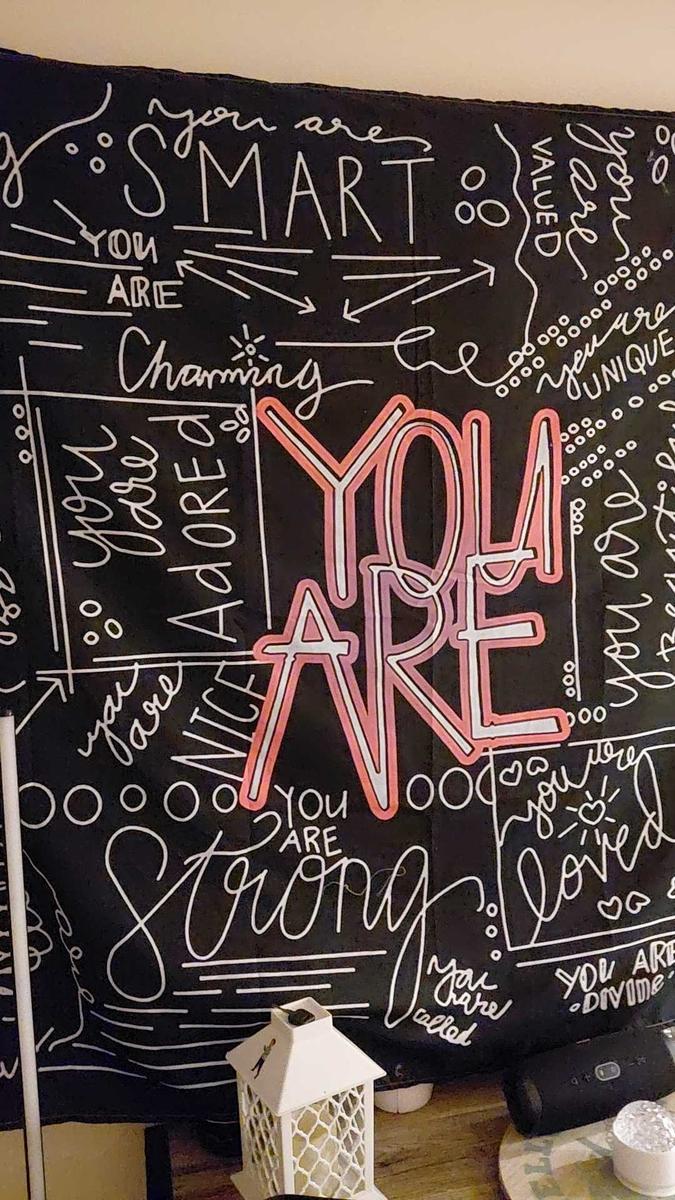 you are
SMART
VALUED
you
are
YOU
ARE
Charming
you are
UNIQUE
you
are
AdOREd
YOU
ARE
you are
you
are
NICE
YOU
ARE
Strong
you are
loved
you
are
called
YOU ARE
DIVINE